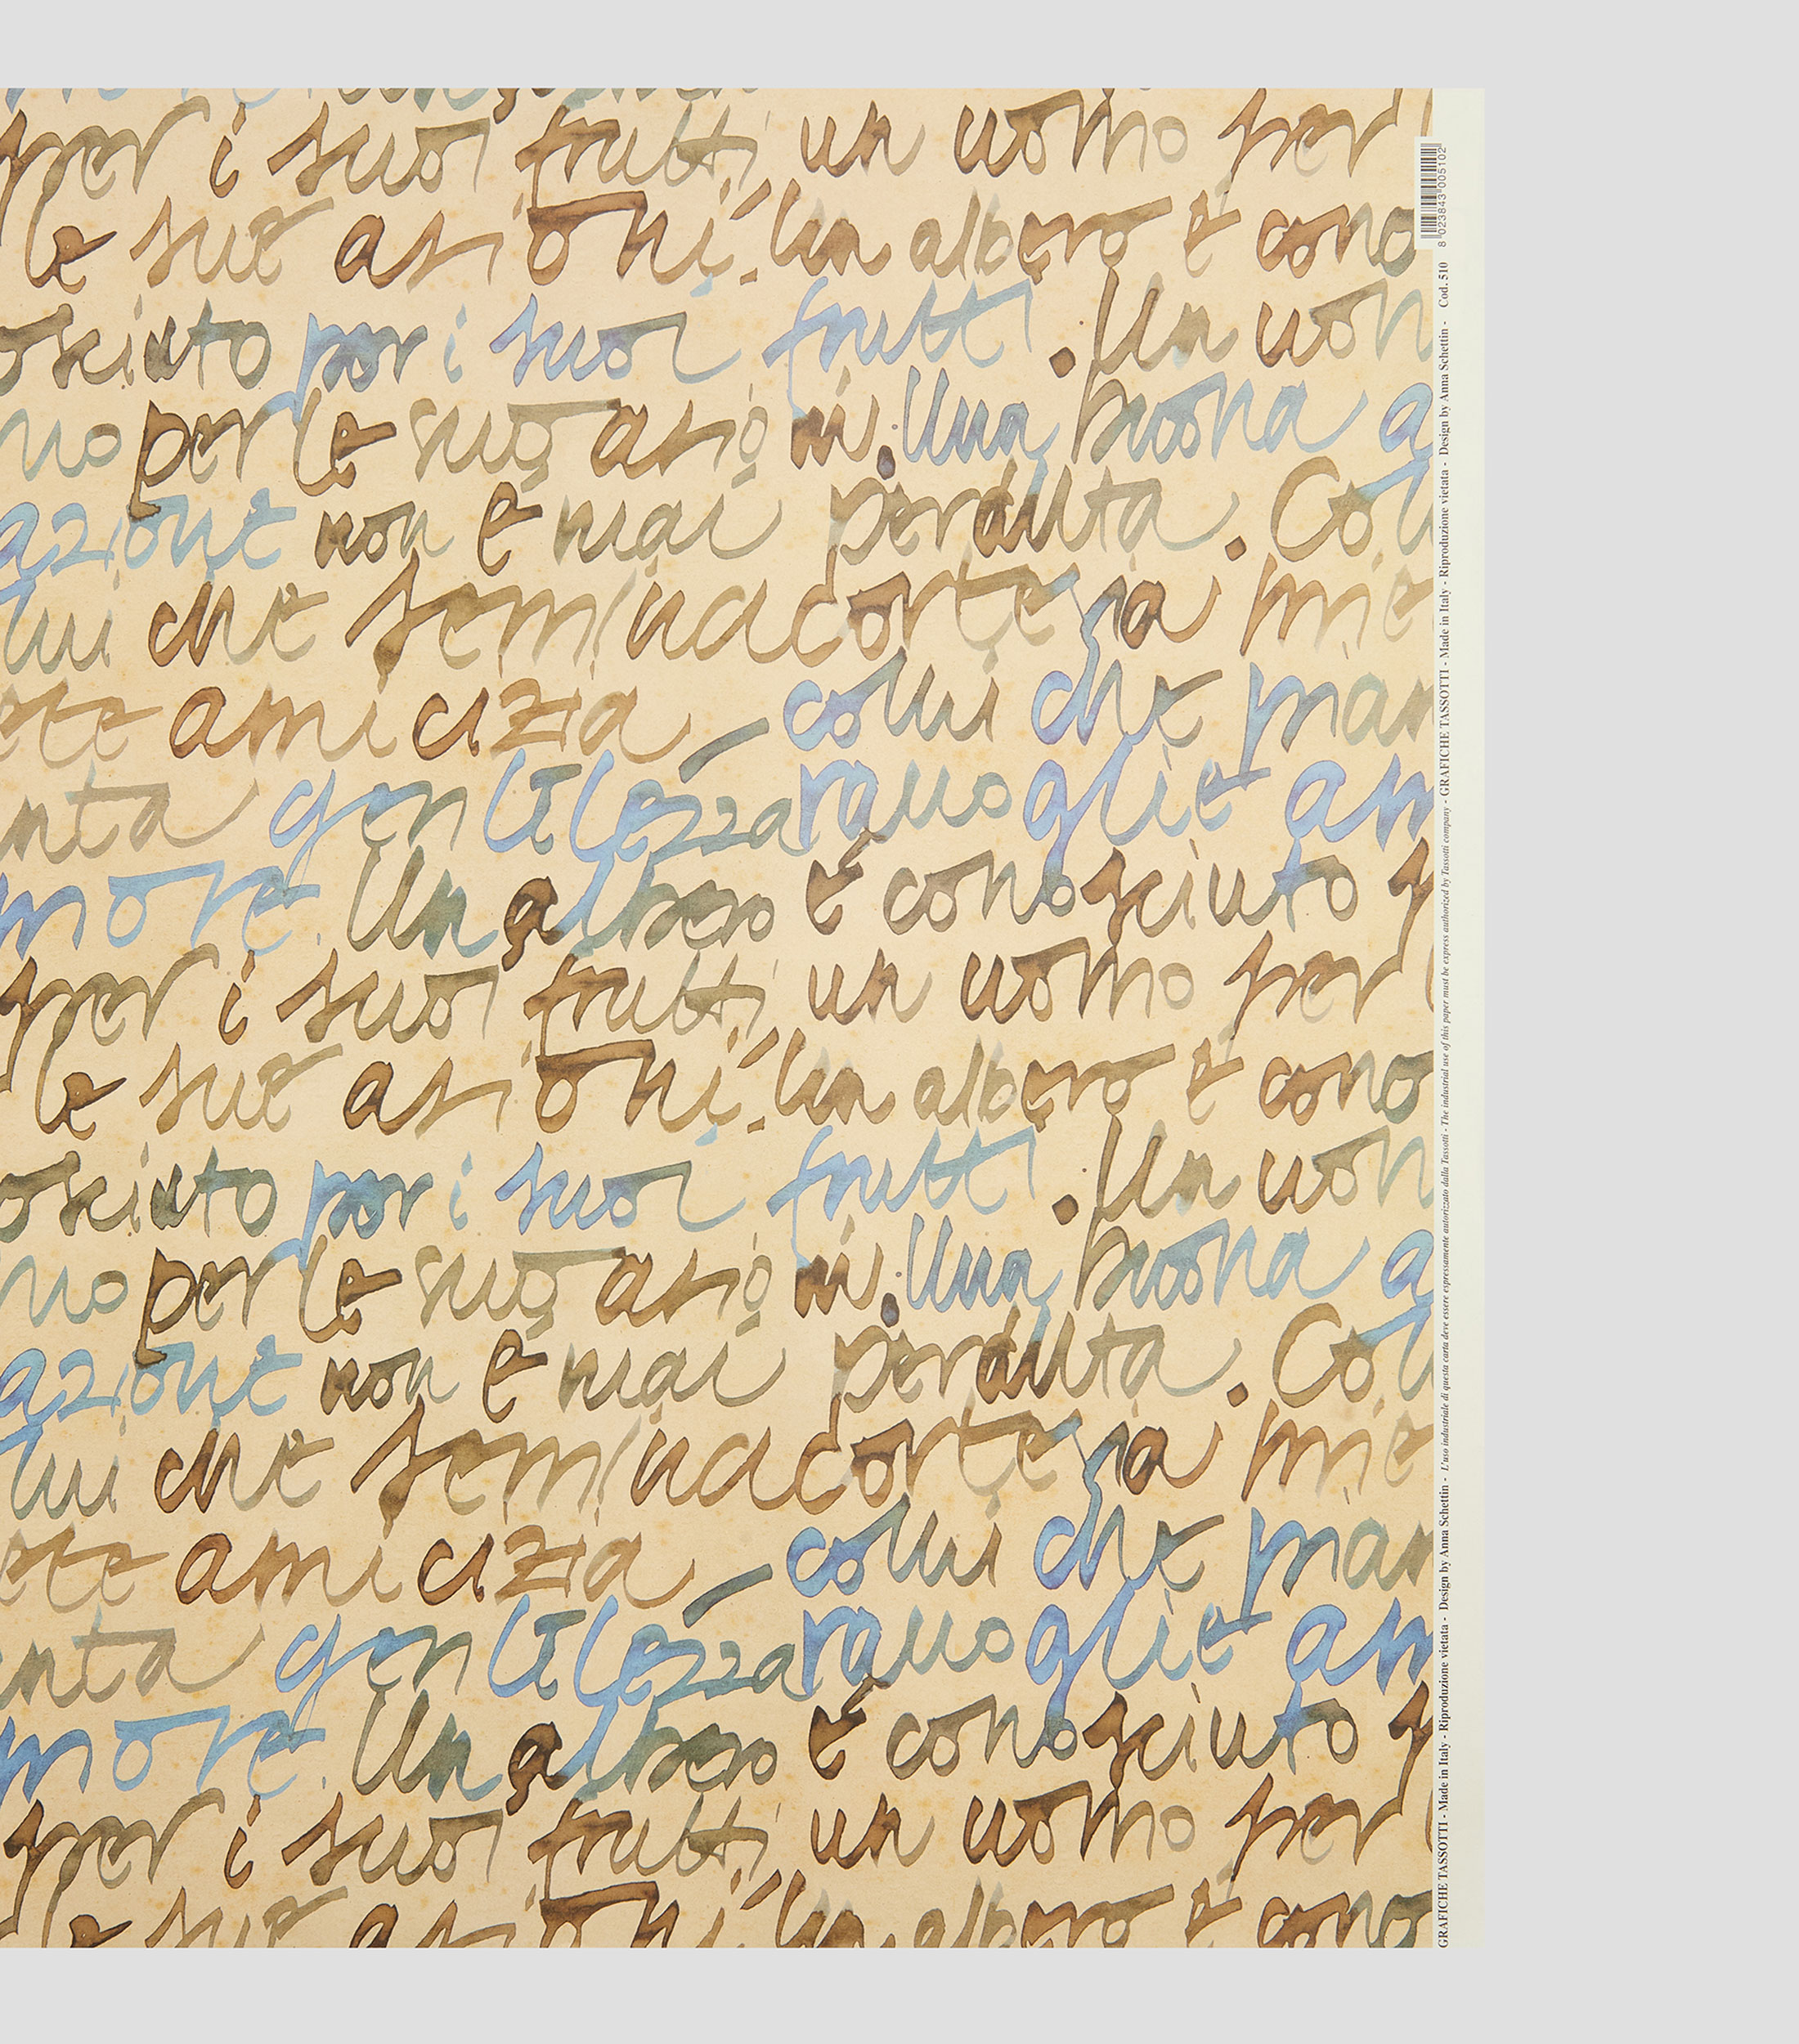 per i suoi frutti, un uomo per
le sue azioni. Un albero è cono
osciuto per i suoi frutti. Un uom
mo per le sue azioni. Una buona a
azione non è mai perduta. Colu
lui che semina cortesia mie
ete amicizia - colui che pian
nta gentilezza raccoglie am
more. Un albero è conosciuto p
per i suoi frutti, un uomo per l
le sue azioni. Un albero è cono
osciuto per i suoi frutti. Un uom
mo per le sue azioni. Una buona a
azione non è mai perduta. Colu
lui che semina cortesia mie
ete amicizia - colui che pian
nta gentilezza raccoglie am
more. Un albero è conosciuto p
per i suoi frutti, un uomo per l
le sue azioni. Un albero è cono
GRAFICHE TASSOTTI - Made in Italy - Riproduzione vietata - Design by Anna Schettin - L'uso industriale di questa carta deve essere espressamente autorizzato dalla Tassotti - The industrial use of this paper must be express authorized by Tassotti company - GRAFICHE TASSOTTI - Made in Italy - Riproduzione vietata - Design by Anna Schettin - Cod. 510
8 023843 005102